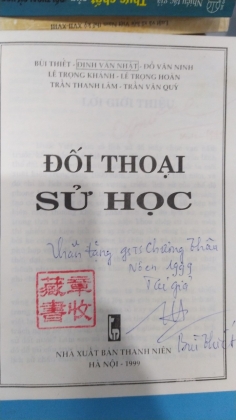 BÙI THIẾT - ĐINH VĂN NHẬT - ĐỖ VĂN NINH
LÊ TRỌNG KHÁNH - LÊ TRỌNG HOÀN
TRẦN THANH LÂM - TRẦN VĂN QUÝ
ĐỐI THOẠI
SỬ HỌC
Thân tặng Chương Thâu
1999
Tác giả
Bùi Thiết
章收
藏書
NHÀ XUẤT BẢN THANH NIÊN
HÀ NỘI - 1999